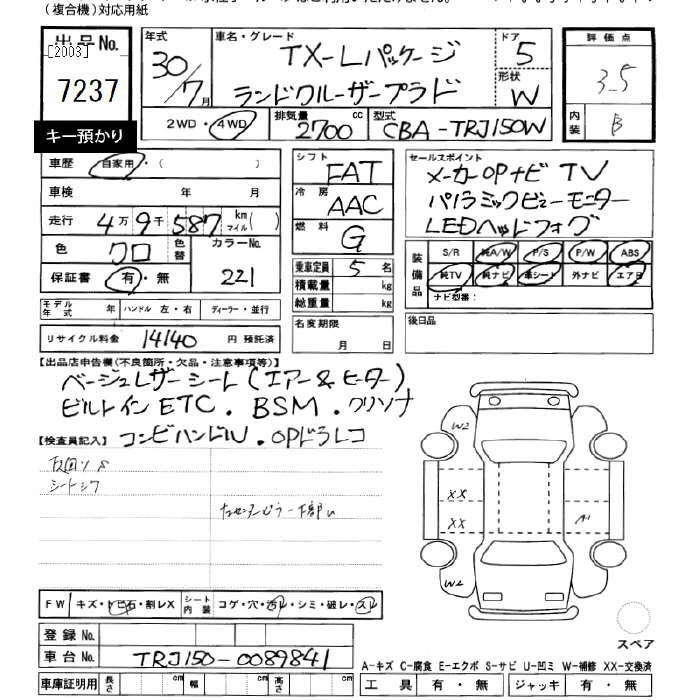 (複合機)対応用紙
出品No. [2003] 7237
キー預かり
年式 30/7月
車名・グレード TX-Lパッケージ
ランドクルーザープラド
ドア 5
形状 W
2WD・4WD 排気量 2700 cc 型式 CBA-TRJ150W
評価点 3.5
内装 B
車歴 自家用・( )
車検 年 月
走行 4万9千587 km マイル( )
色 クロ 色替 カラーNo. 221
保証書 有・無
モデル年式 年 ハンドル 左・右 ディーラー・並行
リサイクル料金 14140 円 預託済
シフト FAT
冷房 AAC
燃料 G
乗車定員 5 名
積載量 kg
総重量 kg
名変期限 月 日
セールスポイント
メーカーOPナビ TV
パノラミックビューモニター
LEDヘッドフォグ
装備品 S/R 純A/W P/S P/W ABS
純TV 純ナビ 革シート 外ナビ エアB
ナビ型番:
後日品
【出品店申告欄(不良箇所・欠品・注意事項等)】
ベージュレザーシート(エアー&ヒーター)
ビルトインETC.BSM.クリソナ
【検査員記入】 コンビハンドル.OPドラレコ
シートシワ
W2
XX
XX
A1
W2
FW キズ・トビ石・割レX シート内装 コゲ・穴・汚レ・シミ・破レ・スレ
登録No.
車台No. TRJ150-0089841
車庫証明用 長さ cm 幅 cm 高さ cm
スペア
A-キズ C-腐食 E-エクボ S-サビ U-凹ミ W-補修 XX-交換済
工具 有・無 ジャッキ 有・無